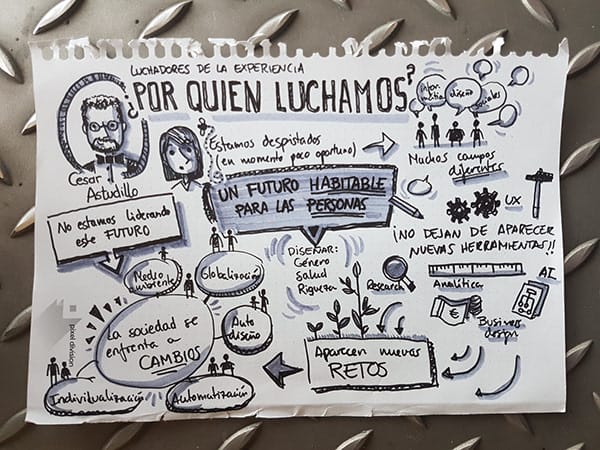 LUCHADORES DE LA EXPERIENCIA
¿POR QUIEN LUCHAMOS?
Cesar
Astudillo
Estamos despistados
(en momento poco oportuno)
diseño
sociales
Muchos campos
diferentes
UN FUTURO HABITABLE
PARA LAS PERSONAS
No estamos liderando
este FUTURO
UX
¡NO DEJAN DE APARECER
NUEVAS HERRAMIENTAS!!
DISEÑAR:
Género
Salud
Riqueza
Research
Analítica
AI
€
Business
design
Medio
ambiente
Globalización
La sociedad se
enfrenta a
CAMBIOS
Auto
diseño
Individualización
Automatización
Aparecen nuevos
RETOS
pixel division